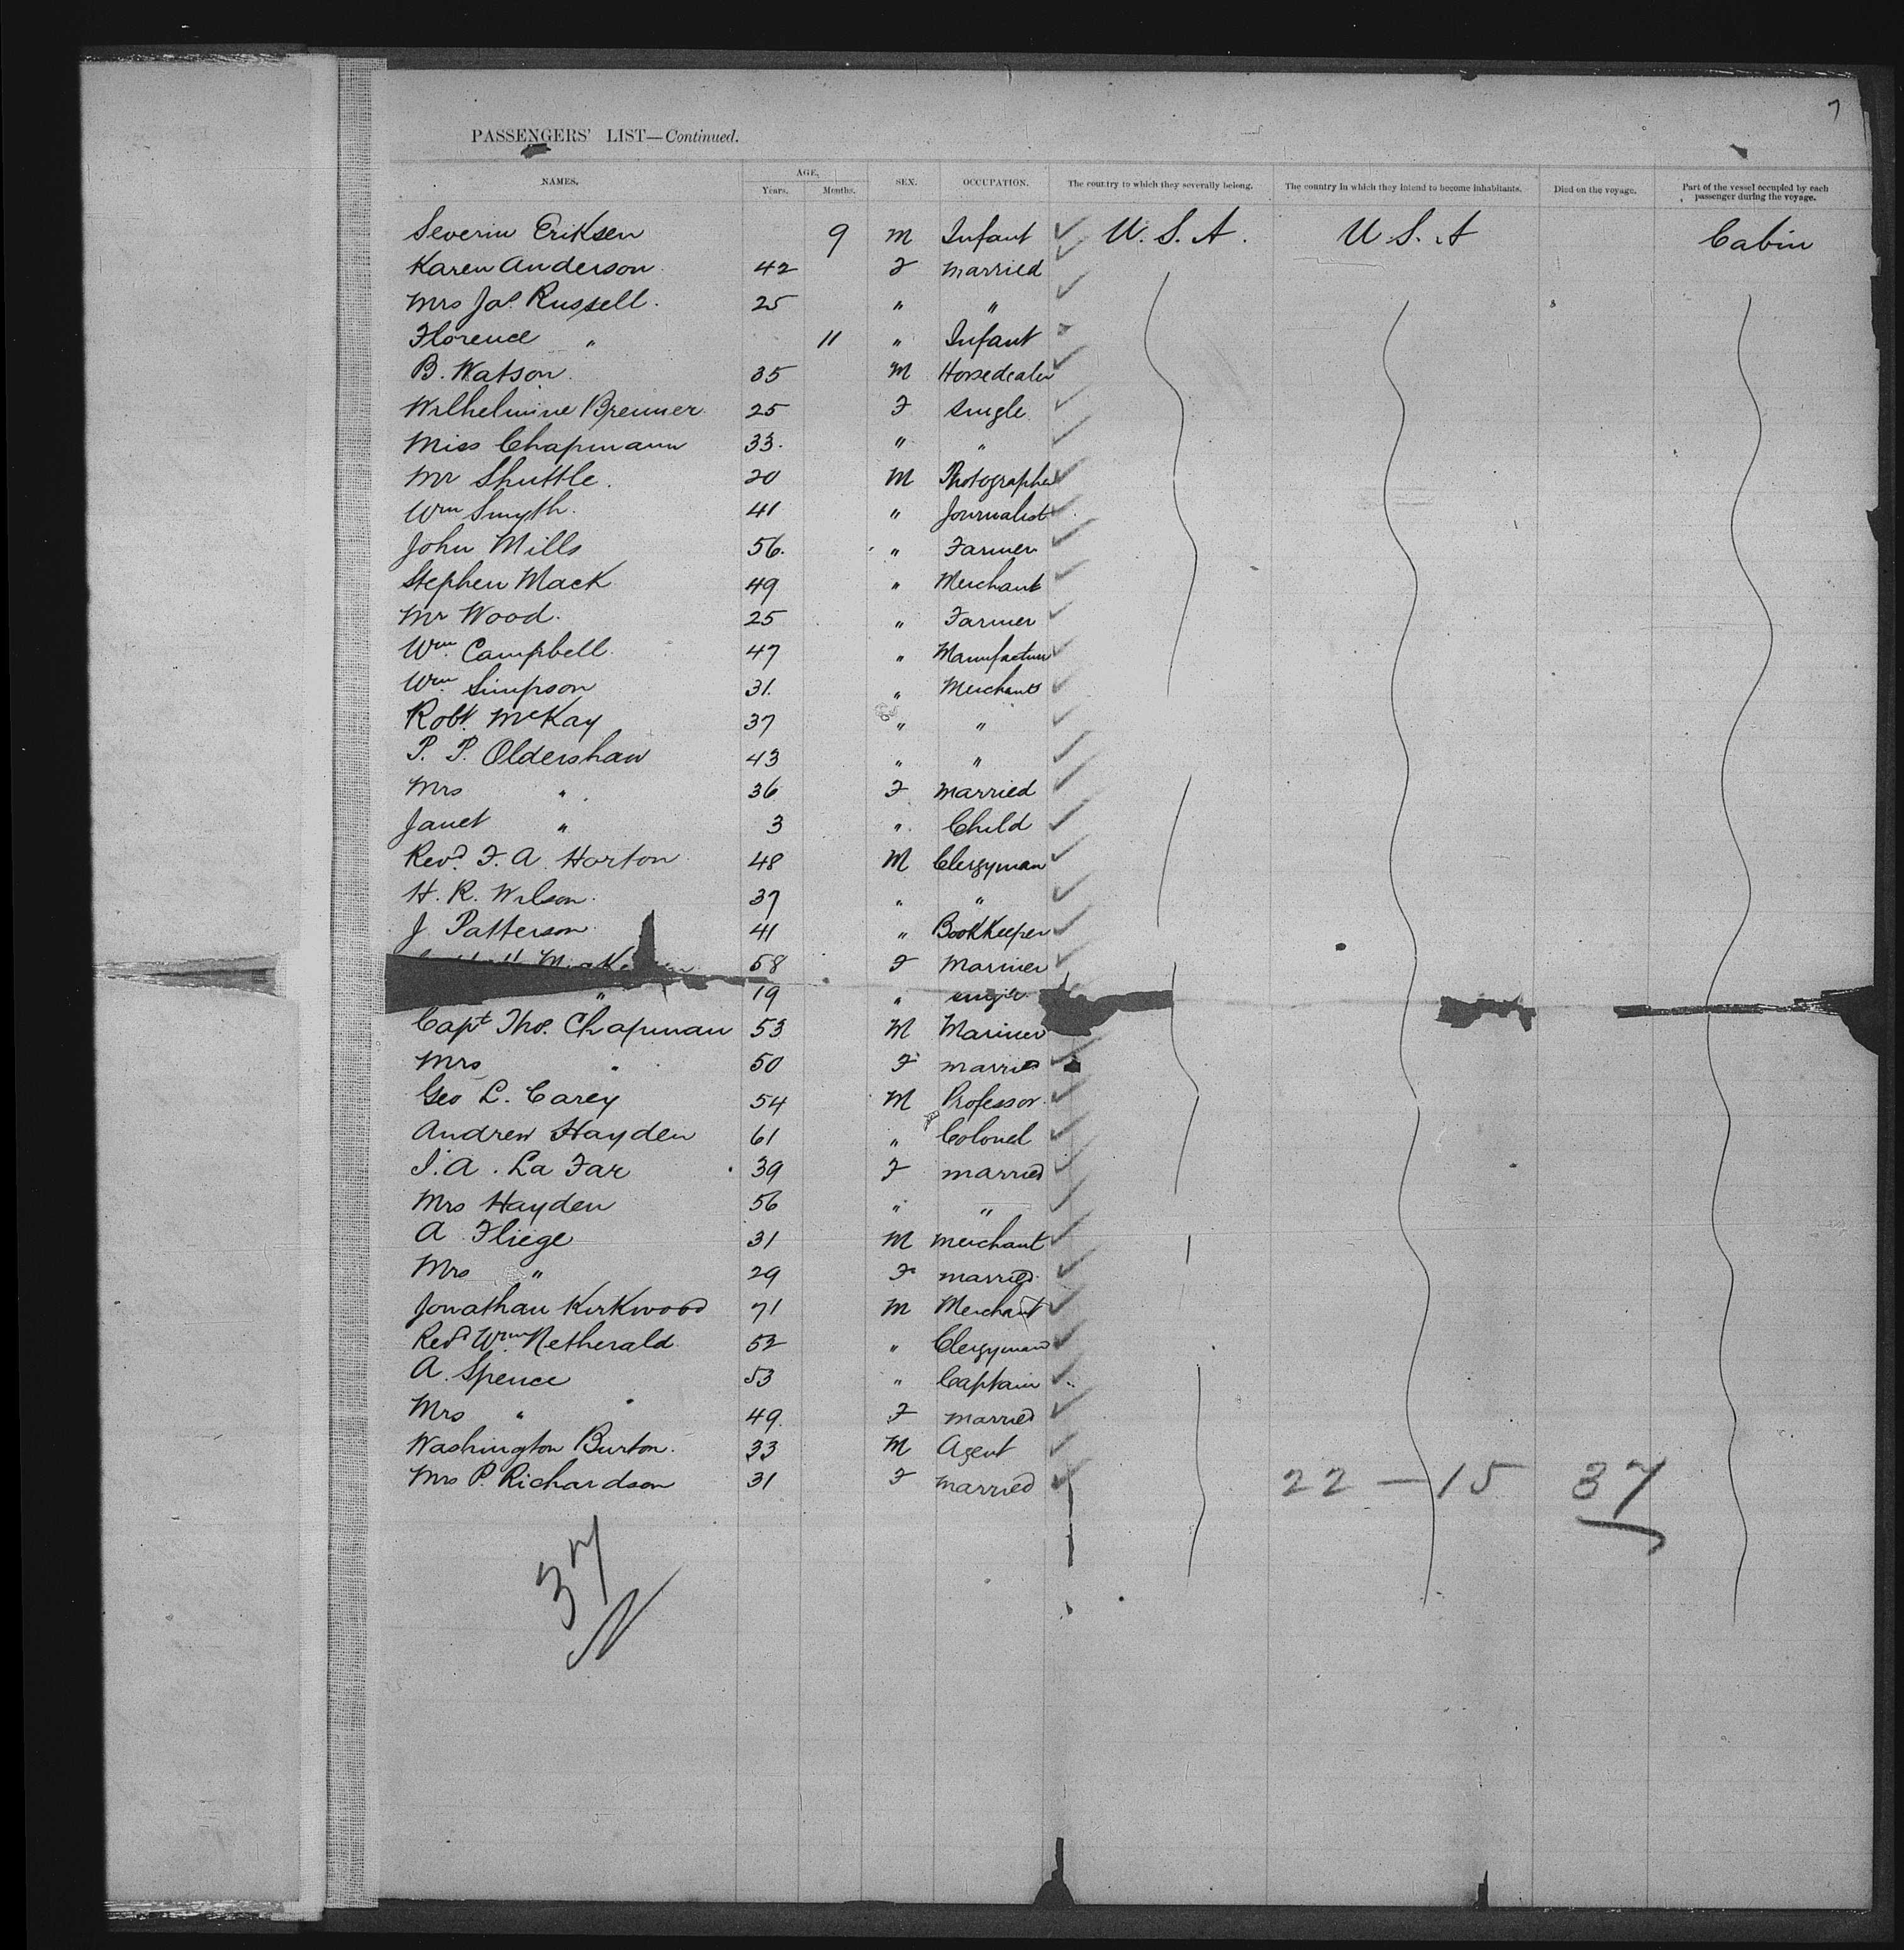 7
PASSENGERS' LIST—Continued.
NAMES. AGE, Years. Months. SEX. OCCUPATION. The country to which they severally belong. The country in which they intend to become inhabitants. Died on the voyage. Part of the vessel occupied by each passenger during the voyage.
Severin Eriksen 9 M Infant ✓ U.S.A. U.S.A Cabin
Karen Anderson 42 F married ✓
Mrs Jas Russell. 25 " " ✓
Florence " 11 " Infant
B. Watson. 35 M Horsedealer ✓
Wilhelmine Brenner 25 F single ✓
Miss Chapmann 33. " " ✓
Mr Shuttle. 20 M Photographer ✓
Wm Smyth. 41 " Journalist ✓
John Mills 56. " Farmer ✓
Stephen Mack 49 " Merchant ✓
Mr Wood. 25 " Farmer ✓
Wm. Campbell. 47 " Manufacturer ✓
Wm. Simpson 31. " Merchant ✓
Robt. McKay 37 " " ✓
P. P. Oldershaw 43 " " ✓
Mrs " 36 F married ✓
Janet " 3 " Child ✓
Revd. F. A. Horton 48 M Clergyman ✓
H. R. Wilson. 37 " " ✓
J. Patterson 41 " Bookkeeper ✓
58 F Mariner ✓
" 19 " single
Capt Thos. Chapman 53 M Mariner
Mrs " 50 F married ✓
Geo L. Carey 54 M Professor. ✓
Andrew Hayden 61 " Colonel ✓
I. A. La Far 39 F married ✓
Mrs Hayden 56 " " ✓
A Fliege 31 M merchant ✓
Mrs " 29 F married. ✓
Jonathan Kirkwood 71 M Merchant ✓
Revd Wm. Netherald 52 " Clergyman ✓
A. Spence 53 " Captain ✓
Mrs " 49. F married ✓
Washington Burton. 33 M Agent ✓
Mrs P. Richardson 31 F married ✓
22 — 15 37
37